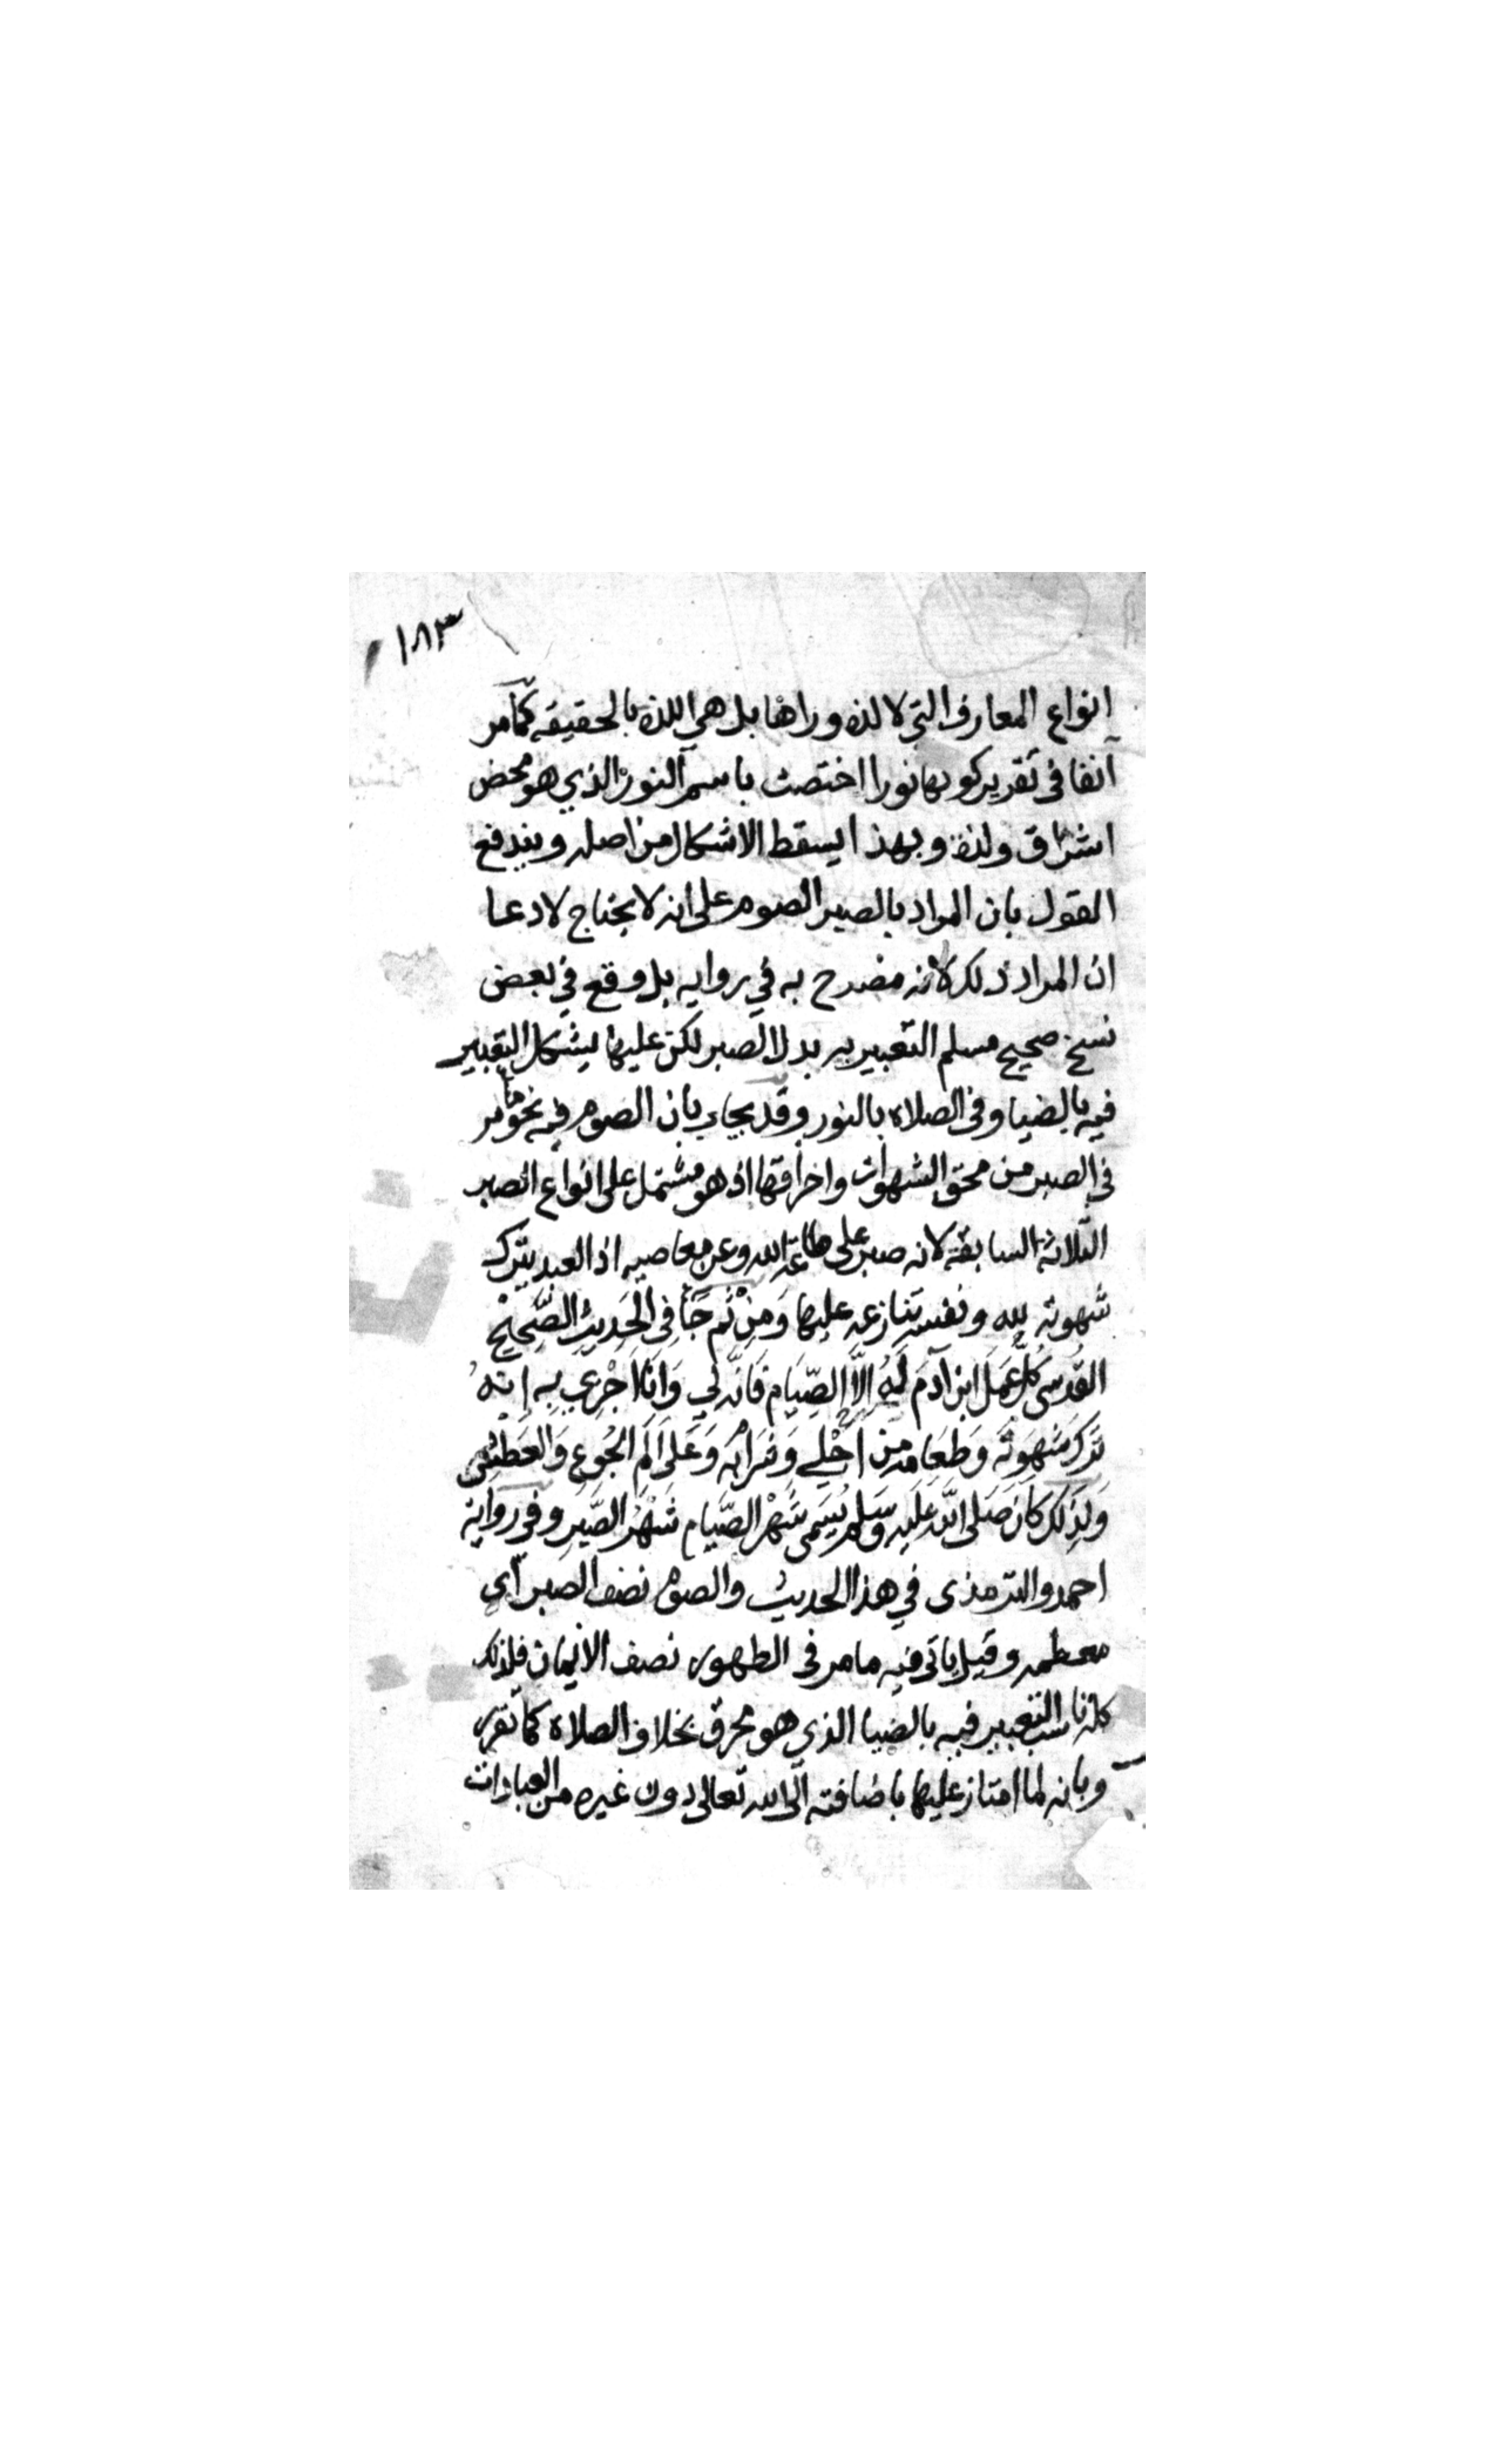 ١٨٣
انواع المعارف التي لا لذة وراها بل هي اللذة بالحقيقة كما مر
آنفا في تقرير كونها نورا اختصت باسم النور الذي هو محض
اشراق ولذة وبهذا يسقط الاشكال من اصله ويندفع
القول بان المراد بالصبر الصوم على انه لا يحتاج لادعا
ان المراد ذلك لانه مصرح به في رواية بل وقع في بعض
نسخ صحيح مسلم التعبير به بدل الصبر لكن عليها يشكل التعبير
فيه بالضيا وفي الصلاة بالنور وقد يجاب بان الصوم فيه نحو ما مر
في الصبر من محق الشهوات واحراقها اذ هو مشتمل على انواع الصبر
الثلاثة السابقة لانه صبر على طاعة الله وعن معاصيه اذ العبد يترك
شهوته لله ونفسه تنازعه عليها وَمِنْ ثَم جَأ فِي الحَدِيثِ الصَّحِيحْ
القدسي كُلُّ عَمَل ابن آدَم لَهُ إلاَّ الصِّيَام فَانَّه لِي وَانَا اجْزِي بِهِ إنهُ
تَركَ شَهوَتَه وَطعَامه مِن اجْلِي وَشَرابَه وَعَلى اَلَم الجُوعِ وَالعَطشِ
وَلِذَلكَ كَانَ صَلى اللّه عَلَيه وَسَلم يُسَمى شَهْر الصّيَام شَهْرُ الصَّبر وفي رواية
احمد والترمذي في هذا الحديث والصوم نصف الصبر أي
معظمه وقيل ياتي فيه ما مر في الطهور نصف الايمان فلذلك
كله ناسب التعبير فيه بالضيا الذي هو محرق بخلاف الصلاة كما تقرر
وبانه لما امتاز عليها باضافته الى الله تعالى دون غيره من العبادات